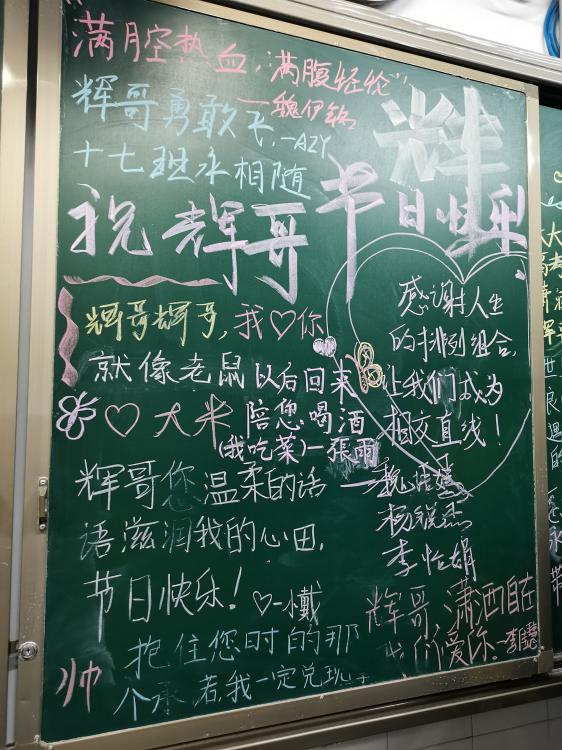 "满腔热血,满腹经纶"
—魏伊铭
辉哥勇敢飞,—AZY
十七班永相随
辉
祝辉哥节日快乐
辉哥辉哥,我♡你
就像老鼠
♡大米
以后回来
陪您喝酒
(我吃菜)—張雨
感谢人生
的排列组合,
让我们成为
相交直线!
杨锐杰
李怡娟
辉哥您温柔的话
语滋润我的心田,
节日快乐!♡—小戴
辉哥,潇洒自在
我们爱你.
帅
抱住您时的那
个承若,我一定兑现